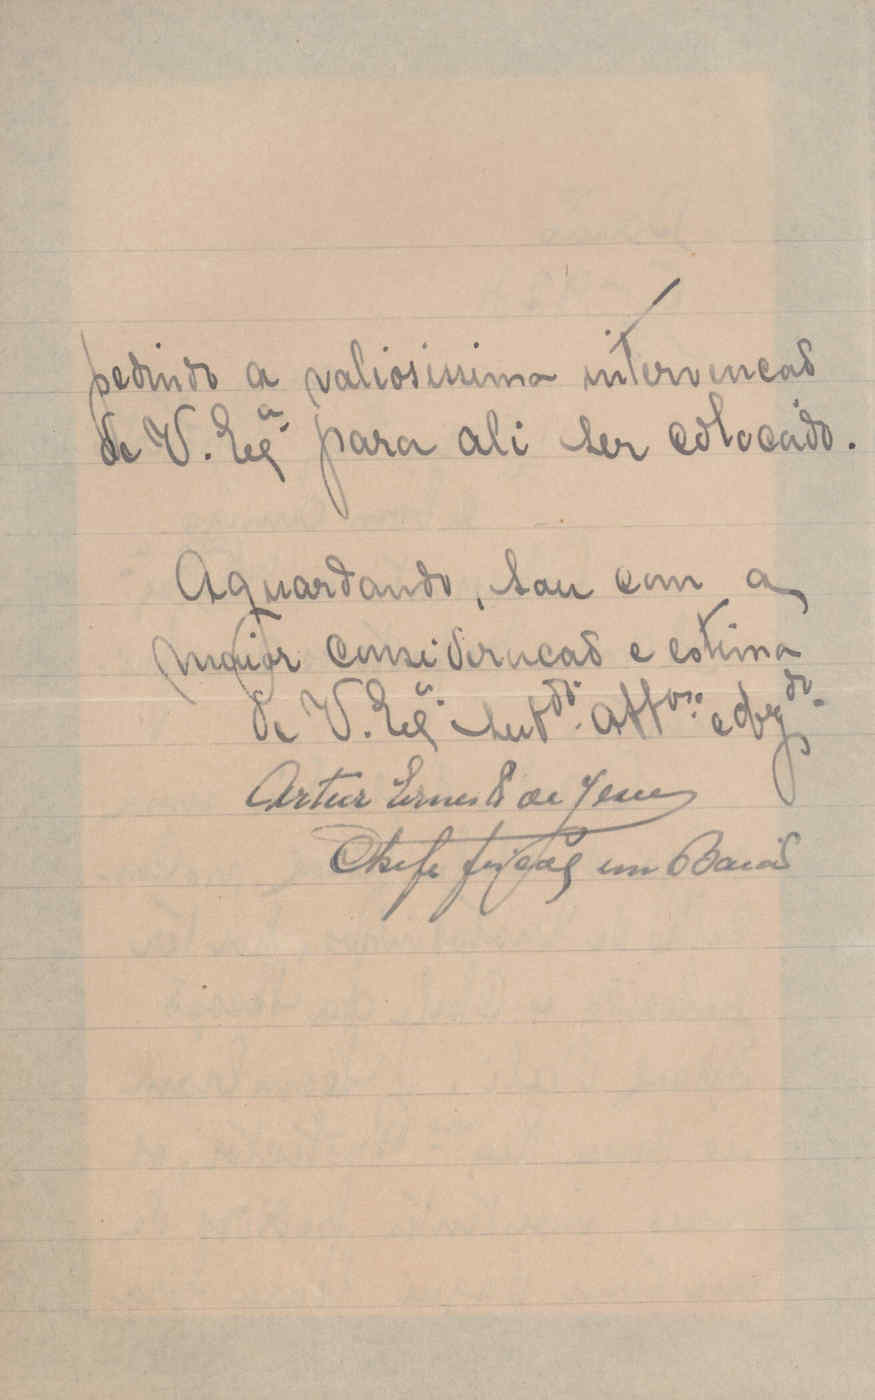 pedindo a valiosissima intervenção
de V. Exª para ali ser colocado.
Aguardando, sou com a
maior consideração e estima
de V. Exª. attº. e obgdo.
Artur Ernesto de Jesus
Chefe fiscal em Baião